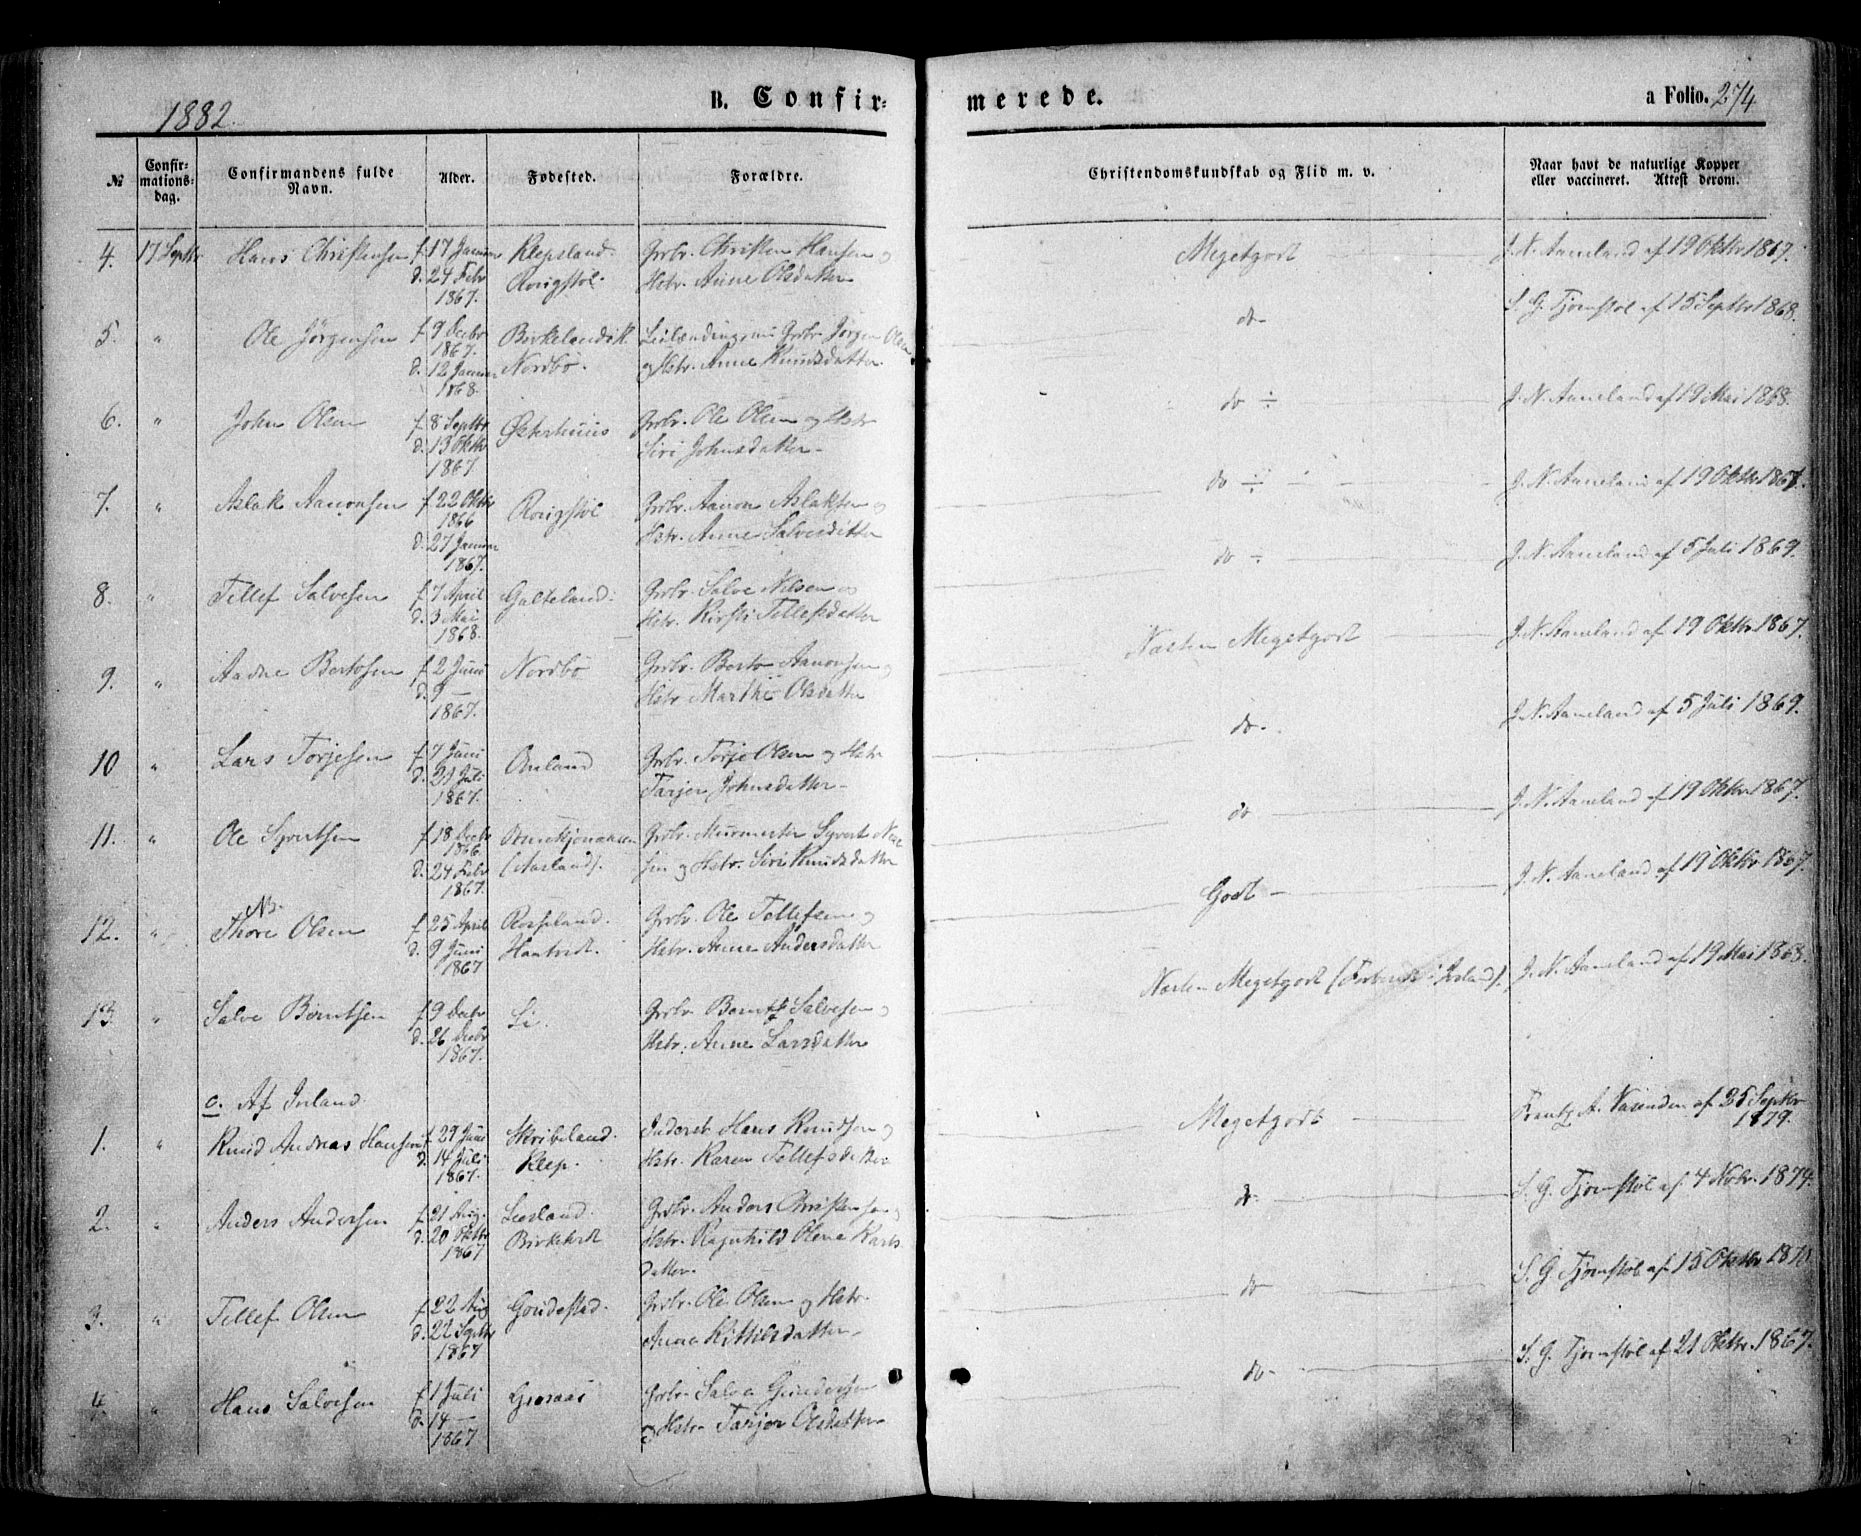 1882.
B. Confir-
merede.
a Folio. 274
№
Confir-
mations-
dag.
Confirmandens fulde
Navn.
Alder.
Fødested.
Forældre.
Christendomskundskab og Flid m. v.
Naar havt de naturlige Kopper
eller vaccineret. Attest derom.
4. 17 Septbr Hans Christensen f. 17 Januar Klepsland Grbr. Christen Hansen og Megetgodt J. N. Aaneland af 19 Oktbr 1867.
d. 24 Febr Rosigstøl Hstr. Anne Olsdatter
1867.
5. " Ole Jørgensen f. 9 Decbr Birkelandsk. Leilænding, nu Grbr Jørgen Olsen do- S. G. Tjomstøl af 15 Septbr 1868.
1867. og Hstr. Anne Knudsdatter
d. 12 Januar Nordbø.
1868.
6. " John Olsen f. 8 Septbr Østerhuus Grbr. Ole Olsen og Hstr do ÷ J. N. Aaneland af 19 Mai 1868.
d. 13 Oktbr Siri Johnsdatter
1867.
7. " Aslak Aanonsen f. 22 Oktbr Rosigstøl Grbr. Aanon Aslaksen og do ÷ J. N. Aaneland af 19 Oktbr. 1867.
1866 Hstr. Anne Salvesdatter
d. 27 Januar
1867.
8. " Tellef Salvesen f. 7 April Galteland. Grbr. Salve Nilsen og do ÷ J. N. Aaneland af 5 Juli 1869.
d. 3 Mai Hstr. Kirsti Tellefsdatter
1868.
9. " Aadne Bertosen f. 2 Juni Nordbø Grbr. Berto Aanonsen og Næsten Megetgodt J. N. Aaneland af 19 Oktbr 1867.
d. 9 — Hstr. Marthe Olsdatter
1867.
10 " Lars Torjesen f. 7 Juni Grbr. Torje Olsen og Hstr do- J. N. Aaneland af 5 Juli 1869.
d. 21 Juli Tarjer Johnsdatter
1867.
11. " Ole Syvertsen f. 18 Decbr Grbr. Murmester Syvert do J. N. Aaneland af 19 Oktbr. 1867.
1866
d. 24 Febr (Aasland). sen og Hstr. Siri Knudsdatter
1867.
NB.
12. " Thore Olsen f. 25 April Rosseland. Grbr. Ole Tellefsen og Godt J. N. Aaneland af 19 Oktbr 1867.
d. 9 Juni Haatvedt. Hstr. Anne Andersdatter
1867
13. " Salve Berntsen f. 9 Decbr Li. Grbr Bernt Salvesen og Næsten Megetgodt J. N. Aaneland af 19 Mai 1868.
d. 26 Decbr Hstr. Anne Larsdatter
1867.
c. Af Iveland.
1. " Knud Andreas Hansen f. 29 Juni Skribeland. Inderst Hans Knudsen og Megetgodt af 25 Septbr
1879.
d. 14 Juli Klep. Hstr. Karen Tellefsdatter
1867.
2. " Anders Andersen f. 21 Aug. Grbr. Anders Christensen og do- S. G. Tjomstøl af 4 Novbr. 1874.
d. 20 Birketvedt Hstr. Ragnhild Olena Karls
1867 datter.
3. " Tellef Olsen f. 22 Aug Goudestad. Grbr. Ole Olsen og Hstr. do S. G. Tjomstøl af 15 Oktbr
d. 22 Septbr Anna Kittilsdatter
1867
4. " Hans Salvesen f. 1 Juli Grosaas Grbr Salve Gundersen do- S. G. Tjomstøl af 21 Oktbr. 1867.
d. 14 — og Hstr Tarjer Olsdatter
1867